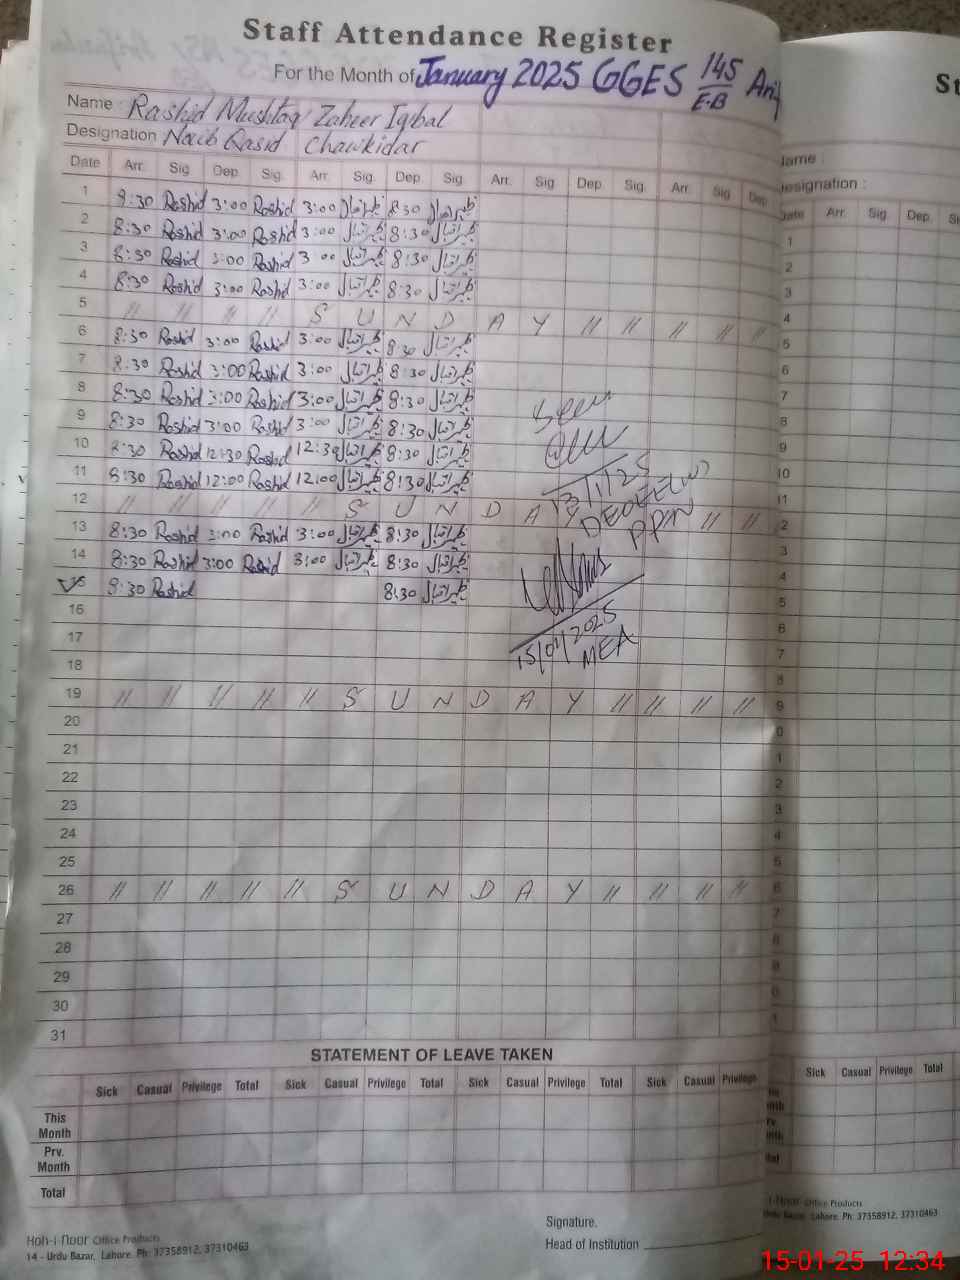 Staff Attendance Register
For the Month of January 2025 GGES 145/E-B Ari
Name : Rashid Mushtaq Zaheer Iqbal
Designation Naib Qasid Chawkidar
Date Arr. Sig. Dep. Sig. Arr. Sig. Dep. Sig. Arr. Sig. Dep. Sig. Arr. Sig. Dep
1 8:30 Rashid 3:00 Rashid 3:00 ظہیر اقبال 8:30 ظہیر اقبال
2 8:30 Rashid 3:00 Rashid 3:00 ظہیر اقبال 8:30 ظہیر اقبال
3 8:30 Rashid 3:00 Rashid 3:00 ظہیر اقبال 8:30 ظہیر اقبال
4 8:30 Rashid 3:00 Rashid 3:00 ظہیر اقبال 8:30 ظہیر اقبال
5 // // // // S U N D A Y // // // // //
6 8:30 Rashid 3:00 Rashid 3:00 ظہیر اقبال 8:30 ظہیر اقبال
7 8:30 Rashid 3:00 Rashid 3:00 ظہیر اقبال 8:30 ظہیر اقبال
8 8:30 Rashid 3:00 Rashid 3:00 ظہیر اقبال 8:30 ظہیر اقبال
9 8:30 Rashid 3:00 Rashid 3:00 ظہیر اقبال 8:30 ظہیر اقبال
10 8:30 Rashid 12:30 Rashid 12:30 ظہیر اقبال 8:30 ظہیر اقبال
11 8:30 Rashid 12:00 Rashid 12:00 ظہیر اقبال 8:30 ظہیر اقبال
12 // // // // // S U N D A Y // //
13 8:30 Rashid 3:00 Rashid 3:00 ظہیر اقبال 8:30 ظہیر اقبال
14 8:30 Rashid 3:00 Rashid 3:00 ظہیر اقبال 8:30 ظہیر اقبال
15 8:30 Rashid 8:30 ظہیر اقبال
Seen
13/1/25
DEO(EE)W)
PPN
15/01/2025
MEA
16
17
18
19 // // // // // S U N D A Y // // // //
20
21
22
23
24
25
26 // // // // // S U N D A Y // // // //
27
28
29
30
31
STATEMENT OF LEAVE TAKEN
Sick Casual Privilege Total Sick Casual Privilege Total Sick Casual Privilege Total Sick Casual Privilege
This Month
Prv. Month
Total
Signature.
Head of Institution
Hoh-i Noor Office Products
14 - Urdu Bazar, Lahore. Ph: 37358912, 37310463
St
lame :
esignation :
ate Arr. Sig. Dep. Si
1
2
3
4
5
6
7
8
9
10
11
2
3
4
5
6
7
8
9
0
1
2
3
4
5
6
7
8
9
0
1
Sick Casual Privilege Total
-i-Noor Office Products
Urdu Bazar, Lahore. Ph: 37358912, 37310463
15-01-25 12:34